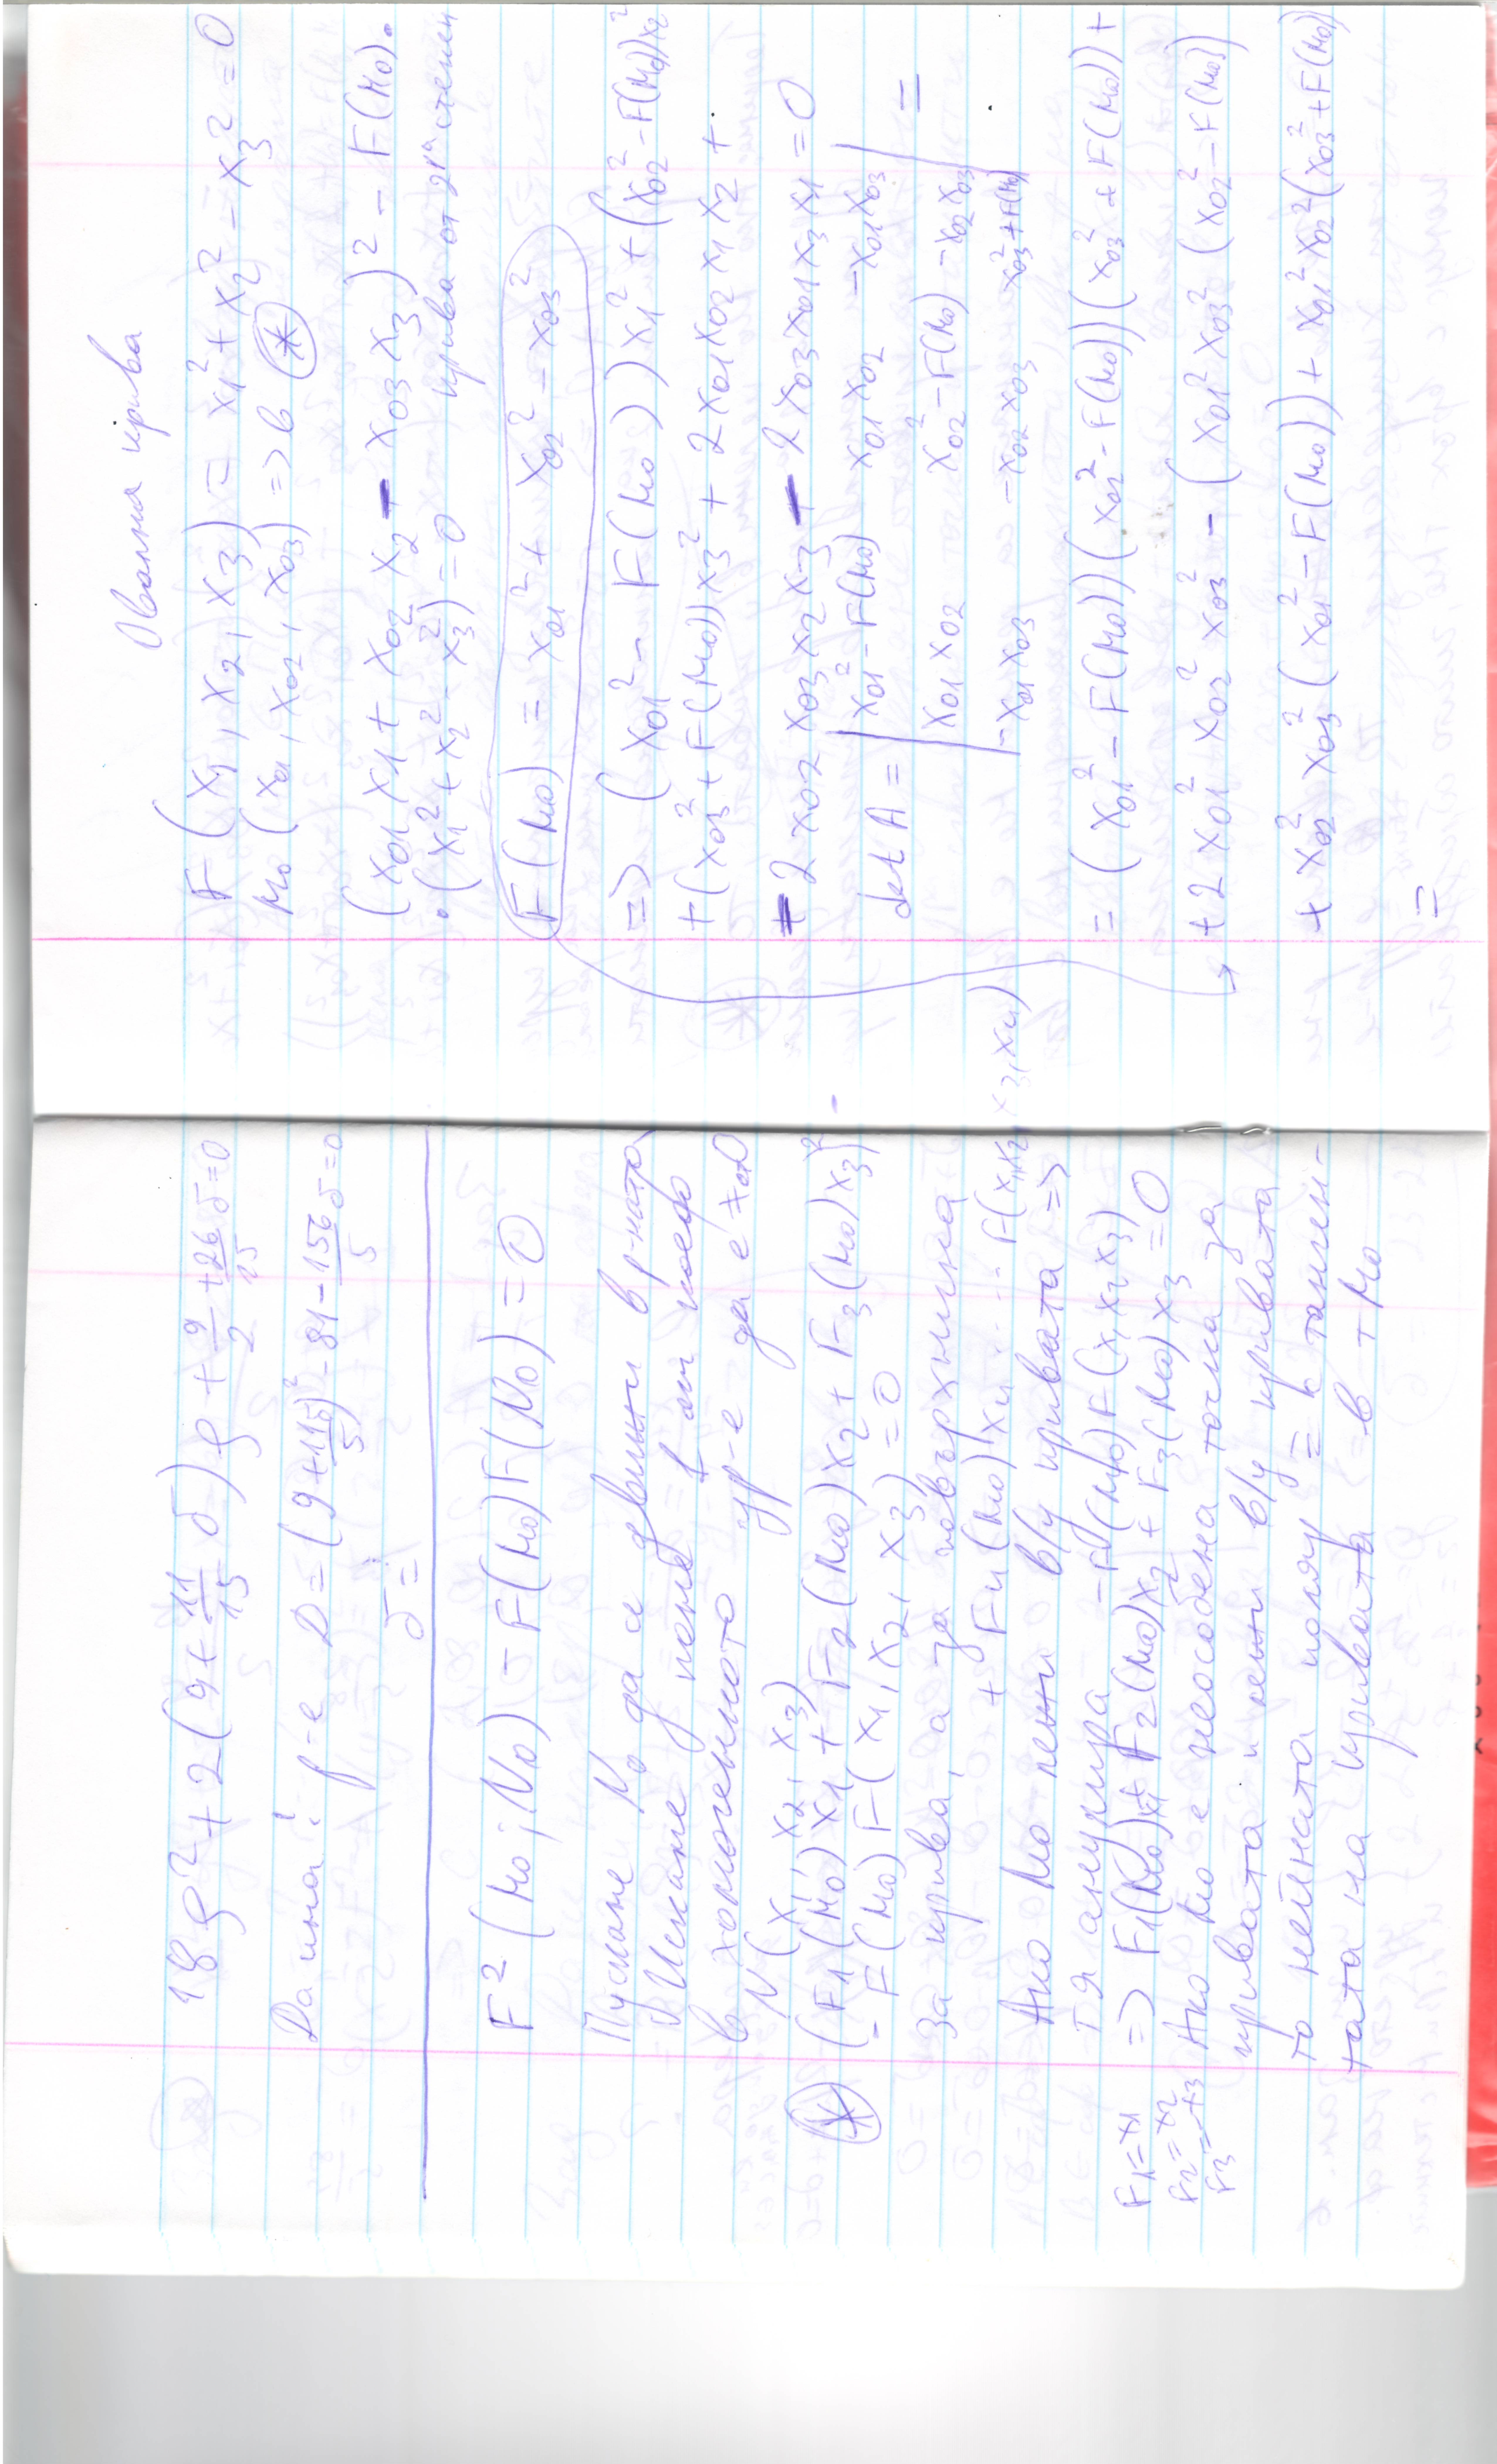 18ρ² + 2(9 + 11/15 σ)ρ + 9/2 + 26/15 σ = 0
D = (9 + 11σ/5)² - 81 - 156/5 σ = 0
σ =
F²(M₀; N₀) - F(M₀)F(N₀) = 0
Пускаме N₀ да се движи в р-ната
Искаме поне 1 от коеф
в хомогенното ур-е да е ≠ 0
N(x₁, x₂, x₃)
(*) (F₁(M₀)x₁ + F₂(M₀)x₂ + F₃(M₀)x₃)² -
- F(M₀)F(x₁, x₂, x₃) = 0
за крива, а за повърхнина
+ F₄(M₀)x₄ .... F(x₁x₂x₃,x₄)
Ако M₀ лежи в/у кривата =>
тя анулира -F(M₀)F(x₁x₂x₃)
=> F₁(M₀)x₁ + F₂(M₀)x₂ + F₃(M₀)x₃ = 0
F₁=x₁
F₂=x₂
F₃=-x₃
Ако M₀ е неособена точка за
кривата и лежи в/у кривата
то нейната поляр = с танген-
тата на кривата в т M₀
Овална крива
F(x₁, x₂, x₃) = x₁² + x₂² - x₃² = 0
M₀(x₀₁, x₀₂, x₀₃) => в (*)
(x₀₁x₁ + x₀₂x₂ - x₀₃x₃)² - F(M₀).
.(x₁² + x₂² - x₃²) = 0 крива от 2ра степен
F(M₀) = x₀₁² + x₀₂² - x₀₃²
=> (x₀₁² - F(M₀))x₁² + (x₀₂² - F(M₀))x₂²
+ (x₀₃² + F(M₀))x₃² + 2x₀₁x₀₂x₁x₂ +
- 2x₀₂x₀₃x₂x₃ - 2x₀₃x₀₁x₃x₁ = 0
det A = | x₀₁² - F(M₀) x₀₁x₀₂ -x₀₁x₀₃ |
| x₀₁x₀₂ x₀₂² - F(M₀) -x₀₂x₀₃ | =
| -x₀₁x₀₃ -x₀₂x₀₃ x₀₃² + F(M₀) |
= (x₀₁² - F(M₀))(x₀₂² - F(M₀))(x₀₃² + F(M₀)) +
+ 2x₀₁²x₀₂²x₀₃² - (x₀₁²x₀₃²(x₀₂² - F(M₀))
+ x₀₂²x₀₃²(x₀₁² - F(M₀)) + x₀₁²x₀₂²(x₀₃² + F(M₀))
=